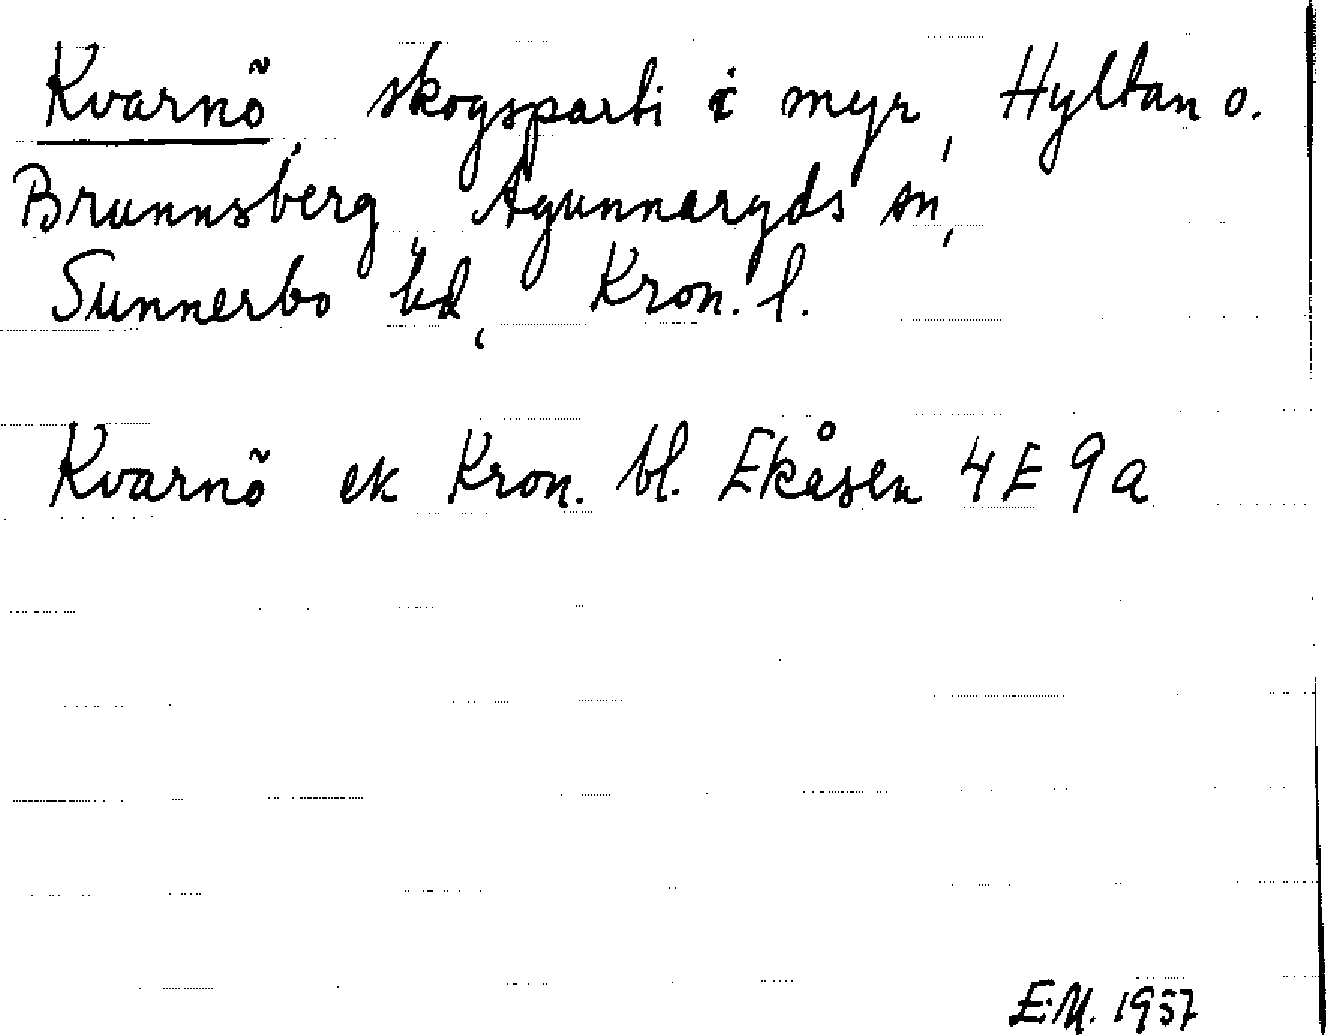 Kvarnö, skogsparti i myr, Hyltan o.
Brunnsberg, Agunnaryds sn,
Sunnerbo hd, Kron. l.
Kvarnö ek Kron. bl. Ekåsen 4 E 9 a
E.M. 1957